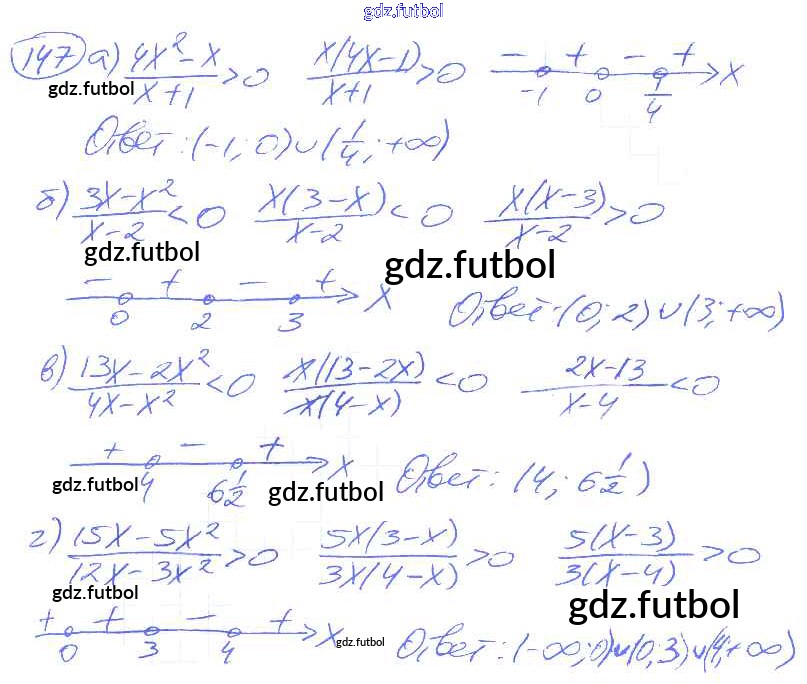 gdz.futbol
147 а) (4x² - x)/(x + 1) > 0   x(4x - 1)/(x + 1) > 0   - + - + x
gdz.futbol -1 0 1/4
Ответ: (-1; 0) ∪ (1/4; +∞)
б) (3x - x²)/(x - 2) < 0   x(3 - x)/(x - 2) < 0   x(x - 3)/(x - 2) > 0
gdz.futbol gdz.futbol
- + - + x
0 2 3 Ответ: (0; 2) ∪ (3; +∞)
в) (13x - 2x²)/(4x - x²) < 0   x(13 - 2x)/x(4 - x) < 0   (2x - 13)/(x - 4) < 0
+ - + x
gdz.futbol 4 6 1/2 gdz.futbol Ответ: (4; 6 1/2)
г) (15x - 5x²)/(12x - 3x²) > 0   5x(3 - x)/3x(4 - x) > 0   5(x - 3)/3(x - 4) > 0
gdz.futbol gdz.futbol
+ + - + x
0 3 4 gdz.futbol Ответ: (-∞; 0) ∪ (0, 3) ∪ (4; +∞)